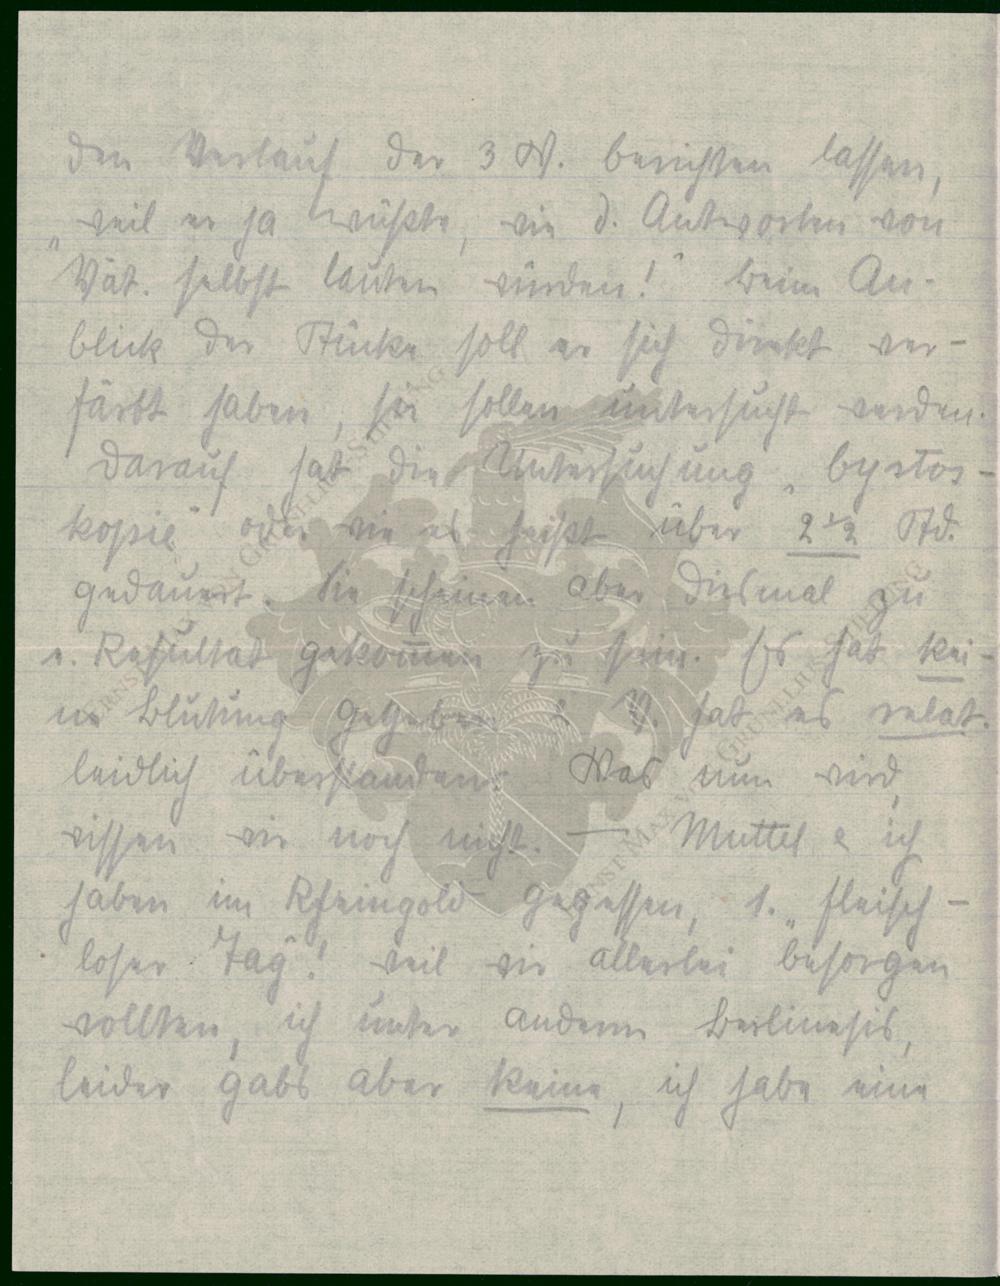 den Verlauf der 3 W. berichten lassen,
weil er ja wüßte, wie d. Antworten von
"Vät. selbst lauten würden!" Beim An-
blick der Stücke soll er sich direkt ver-
färbt haben, sie sollen untersucht werden.
Darauf hat die Untersuchung "bystos-
kopie" oder wie es heißt über 2 1/2 Std.
gedauert. Sie scheinen aber diesmal zu
e. Resultat gekommen zu sein. Es hat kei-
ne Blutung gegeben & V. hat es relat.
leidlich überstanden. Was nun wird,
wissen wir noch nicht. — Muttel & ich
haben im Rheingold gegessen, 1. "fleisch-
loser Tag"! weil wir allerlei besorgen
wollten, ich unter anderm
leider gabs aber keine, ich habe eine
ERNST MAX VON GRUNELIUS-STIFTUNG
ERNST MAX VON GRUNELIUS-STIFTUNG